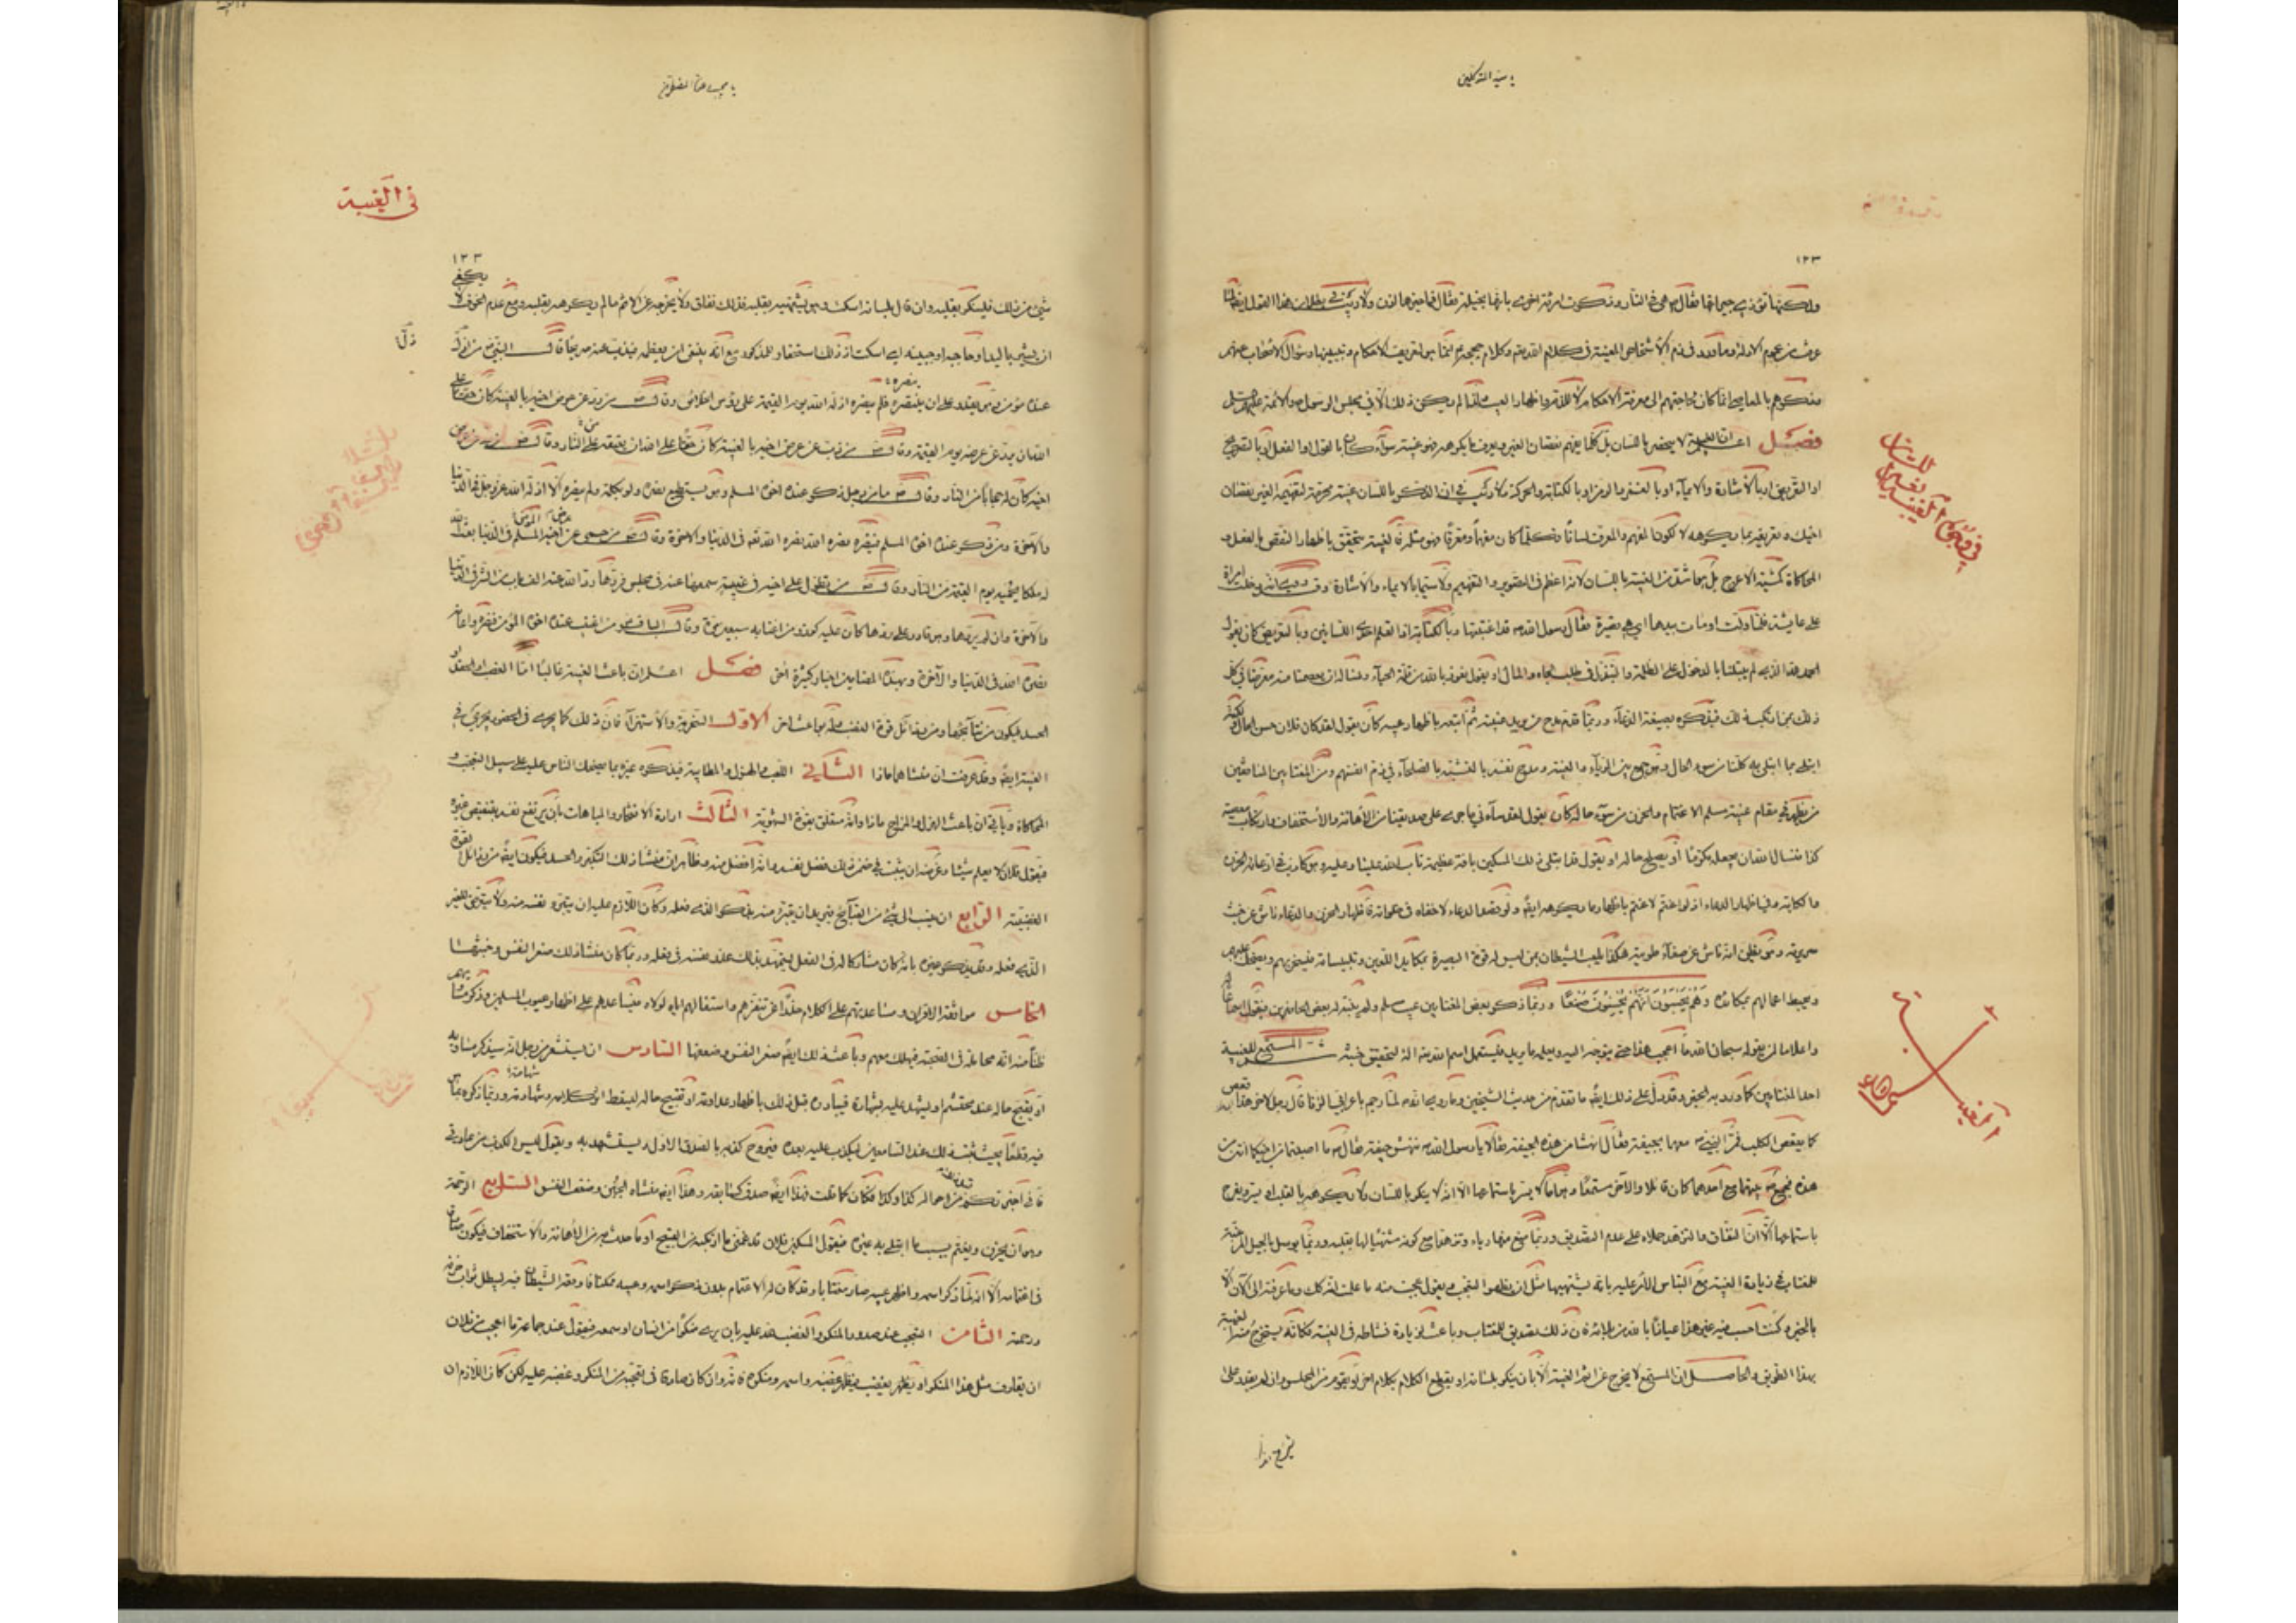 في الغيبة
١٢٣
ولكنها تؤذي جيرانها فقال هي في النار وذكرت امرئة اخرى بانها بخيلة فقال فما خيرها اذن ولا ريب في بطلان هذا القول
عرفت من عموم الادلة وما ورد في ذم الاشخاص المعينة في كلام الله وكلام حججه انما هو لتعريف الاحكام وتبيينها وسؤال الاصحاب عنهم
وذكرهم بالمعاصي انما كان لحاجتهم الى معرفة الاحكام لا للذم واظهار العيب ولذا لم يكن ذلك الا في مجلس الرسول او الائمة
فصل اعلم ان الغيبة لا ينحصر باللسان بل كلما يفهم نقصان الغير ويعرف ما يكرهه فهو غيبة سواء كان بالقول او الفعل او بالتصريح
او التعريض او بالاشارة والايماء او بالغمز والرمز او بالكتابة والحركة ولا ريب في ان الذكر باللسان غيبة محرمة لتفهيمه الغير نقصان
اخيك وتعريفه بما يكرهه لا لكون المفهم والمعرف لسانا فكلما كان مفهما ومعرفا فهو مثله فالغيبة يتحقق باظهار النقص بالفعل و
المحاكاة كمشية الاعرج بل هي اشد من الغيبة باللسان لانه اعظم في التصوير والتفهيم ولا سيما بالايماء والاشارة وقد روي انه دخلت امراة
على عايشة فلما ولت اومات بيدها اي هي قصيرة فقال رسول الله قد اغتبتها وبالكتابة اذ القلم احدى اللسانين وبالتعريض كان يقول
الحمد لله الذي لم يبتلنا بالدخول على الظلمة والتبذل في طلب الجاه والمال او يقول نعوذ بالله من قلة الحياء ونساله ان يعصمنا منه معرضا في كل
ذلك بمن ارتكب ذلك فيذكره بصيغة الدعاء وربما قدم مدح من يريد غيبته ثم اتبعه باظهار عيبه كان يقول لقد كان فلان حسن الحال ولكنه
ابتلي بما ابتلي به كلنا من سوء الحال وهو جمع بين الرياء والغيبة ومدح نفسه بالتشبه بالصلحاء في ذم انفسهم ومن المغتابين المنافقين
من يظهر في مقام غيبة مسلم الاغتمام والحزن من سوء حاله كان يقول لقد ساءني ما جرى على صديقنا من الاهانة والاستخفاف وارتكاب معصية
كذا فنسال الله ان يجعله مكرما او يصلح حاله او يقول قد ابتلي ذلك المسكين بافة عظيمة تاب الله علينا وعليه وهو كاذب في ادعائه الحزن
والكابة وفي اظهار الدعاء اذ لو اغتم لاغتم باظهار ما يكرهه ايضا ولو قصد الدعاء لاخفاه في خلواته فاظهار الحزن والدعاء ناش عن خبث
سريرته وهو يظن انه ناش عن صفاء طويته هكذا يلعب الشيطان بمن ليس له قوة البصيرة بمكايد اللعين وتلبيساته فيسخر بهم ويضحك عليهم
ويحبط اعمالهم بمكايده وهم يحسبون انهم يحسنون صنعا وربما ذكر بعض المغتابين عيب مسلم ولم يتنبه له بعض الحاضرين فيقول اسماعا له
واعلاما لمن يقوله سبحان الله ما اعجب هذا حتى يتوجه اليه ويعلم ما يريد فيستعمل اسم الله الة لتحقيق خبثه المستمع للغيبة
احد المغتابين كما ورد به الخبر وقد دل على ذلك ايضا ما تقدم من حديث الشيخين وما روي انه لما رجم ماعز في الزنا قال رجل لاخر هذا قعص
كما يقعص الكلب فمر النبي معهما بجيفة فقال انهشا من هذه الجيفة فقالا يا رسول الله ننهش جيفة فقال ما اصبتما من اخيكما انتن من
هذه فجمع بينهما مع ان احدهما كان قائلا والاخر مستمعا
باستماعها الا ان النفاق والتزهد حملاه على عدم التصديق وربما منع منها رياء وتزهدا مع كونه مشتهيا لها بقلبه وربما توسل بالحيل المرغبة
للمغتاب في زيادة الغيبة مع التباس الامر عليه بانه يشتهيها مثل ان يظهر التعجب ويقول عجبت منه ما علمت انه كذلك وما عرفته الى الان الا
بالخير وكنت احسب فيه غير هذا عافانا الله من بلائه فان ذلك تصديق للمغتاب وباعث لزيادة نشاطه في الغيبة فكانه يستخرج منه الغيبة
بهذا الطريق والحاصل ان المستمع لا يخرج عن اثم الغيبة الا بان ينكر بلسانه او يقطع الكلام بكلام اخر او يقوم من المجلس وان لم يقدر على
١٢٣
شيء من ذلك فلينكر بقلبه وان قال بلسانه اسكت وهو يشتهيه بقلبه فذلك نفاق ولا يخرجه عن الاثم ما لم يكرهه بقلبه ومع عدم الخوف لا يكفي
ان يشير باليد او حاجبه او جبينه اي اسكت اذ ذلك استحقار للمذكور مع انه ينبغي ان يعظمه فيذب عنه صريحا قال النبي من اذل
عنده مؤمن وهو يقدر على ان ينصره فلم ينصره اذله الله يوم القيمة على رؤس الخلائق وقال من رد عن عرض اخيه بالغيبة كان حقا على
الله ان يرد عن عرضه يوم القيمة وقال من ذب عن عرض اخيه بالغيبة كان حقا على الله ان يعتقه من النار وقال
اخيه كان له حجابا من النار وقال ما من رجل ذكر عنده اخوه المسلم وهو يستطيع نصره ولو بكلمة ولم ينصره الا اذله الله عز وجل في الدنيا
والاخرة ومن ذكر عنده اخوه المسلم فنصره نصره الله تعالى في الدنيا والاخرة وقال من حمى عن عرض اخيه المسلم في الدنيا بعث الله
له ملكا يحميه يوم القيمة من النار وقال من تطول على اخيه في غيبة سمعها عنه في مجلس فردها رد الله عنه الف باب من الشر في الدنيا
والاخرة وان لم يردها وهو قادر على ردها كان عليه كوزر من اغتابه سبعين مرة وقال الباقر من اغتيب عنده اخوه المؤمن فنصره واعانه
نصره الله في الدنيا والاخرة وبهذه المضامين اخبار كثيرة اخر فصل اعلم ان باعث الغيبة غالبا اما الغضب او الحقد او
الحسد فيكون من نتايجها ومن رذائل قوة الغضب ولها بواعث اخر الاول السخرية والاستهزاء فان ذلك كما يجري في الحضور يجري في
الغيبة ايضا وقد عرفت ان منشاهما ماذا الثاني اللعب والهزل والمطايبة فيذكر غيره بما يضحك الناس عليه على سبيل التعجب و
المحاكاة وياتي ان باعث الهزل والمزاح ماذا وانه متعلق بقوة الشهوية الثالث ارادة الافتخار والمباهات بان يرفع نفسه بتنقيص غيره
فيقول فلان لا يعلم شيئا وغرضه ان يثبت في ضمن ذلك فضل نفسه وانه افضل منه وظاهر ان منشا ذلك التكبر والحسد فيكون ايضا من رذائل قوة
الغضبية الرابع ان ينسب الى شيء من القبايح فيريد ان يتبرء منه بذكر الذي فعله وكان اللازم عليه ان يبرئ نفسه منه ولا يتعرض للغير
الذي فعله وقد يذكر غيره بانه كان مشاركا له في الفعل ليتمهد بذلك عذر نفسه في فعله وربما كان منشا ذلك صغر النفس وخبثها
الخامس موافقة الاقران ومساعدتهم على الكلام حذرا عن تنفرهم واستثقالهم اياه لولاه فيساعدهم على اظهار عيوب المسلمين وذكر مساويهم
ظنا منه انه مجاملة في الصحبة فيهلك معهم وباعث ذلك ايضا صغر النفس وضعفها السادس ان يستشعر من رجل انه سيذكر مساويه
او يقبح حاله عند محتشم او يشهد عليه بشهادة فيبادره قبل ذلك باظهار عداوته او تقبيح حاله ليسقط اثر كلامه وشهادته وربما ذكره بما هو
فيه قطعا بحيث ثبت ذلك عند السامعين ليكذب عليه بعده فيروج كذبه بالصدق الاول ويستشهد به ويقول ليس الكذب من عادتي
فاني اخبرتكم من احواله كذا وكذا فكان كما قلت فهذا ايضا صدق كسابقه وهذا ايضا منشاه الجبن وضعف النفس السابع الرحمة
وهو ان يحزن ويغتم بسبب ما ابتلي به غيره فيقول المسكين فلان قد غمني ما ارتكبه من القبيح او ما حدث به من الاهانة والاستخفاف فيكون صادقا
في اغتمامه الا انه لما ذكر اسمه واظهر عيبه صار مغتابا وقد كان له الاغتمام بدون ذكر اسمه وعيبه ممكنا فاوقعه الشيطان فيه ليبطل ثواب حزنه
ورحمته الثامن التعجب من صدور المنكر والغضب لله عليه بان يرى منكرا من انسان او سمعه فيقول عند جماعة ما اعجب من فلان
ان يتعارف مثل هذا المنكر او يظهر غضبه واسمه ومنكره فانه وان كان صادقا في تعجبه من المنكر وغضبه عليه لكن كان اللازم ان